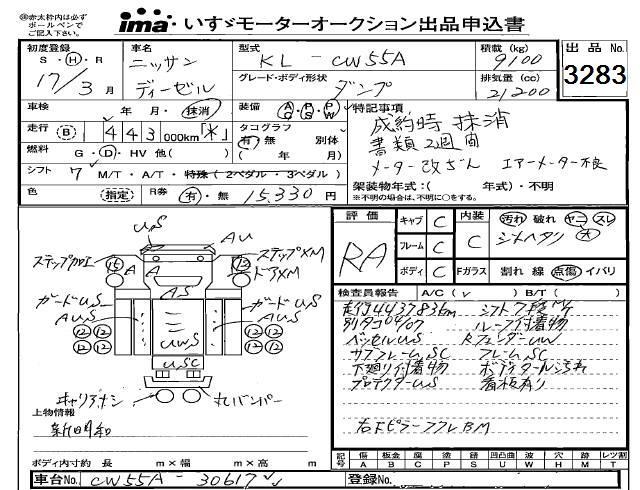 ㊟赤太枠内は必ず
ボールペンで
ご記入下さい。
ima いすゞモーターオークション出品申込書
初度登録 S・H・R 17/3月
車名 ニッサン ディーゼル
型式 KL-CW55A
グレード・ボディ形状 ダンプ
積載(kg) 9100
排気量(cc) 21200
出品No. 3283
車検 年 月・抹消
装備 AC PS PW
特記事項
成約時 抹消
書類2週間
メーター改ざん エアーメーター不良
走行 B 443 000km「*」
タコグラフ 有・無 別体
( 年 月)
燃料 G・D・HV 他( )
シフト 7 M/T・A/T・特殊(2ペダル・3ペダル)
架装物年式:( 年式)・不明
※不明の場合は、不明に○をする。
色 (指定) R券 有・無 15,330円
評価 RA
キャブ C
フレーム C
ボディ C
内装 C
汚れ 破れ ヤニ スレ
シートヘタリ 大
Fガラス 割れ 線 点傷 イバリ
検査員報告 A/C( ✓ ) B/T( )
走行443783km シフト7段MT
別タコ04/07 ルーフ付着物
ベッセルUS RフェンダーUW
サブフレームSC フレームSC
下廻り付着物
プロテクターUS 看板有り
右下ピラーフフレBM
US
AU
ステップ加工 15 A A 12 ステップXM
ドアXM
AS
ガードUS
AUS
ガードUS
AUS
UWS
12 12 12 12
12 12 12 12
USC
キャリアナシ
丸バンパー
上物情報
新明和
ボディ内寸約 長 m×幅 m×高 m
記号 傷 A 板金 B 腐 C 塗 P 錆 S 凹凸曲 U 波 W 穴 H 跡 M レツ割 T
車台No. CW55A-30617
登録No.